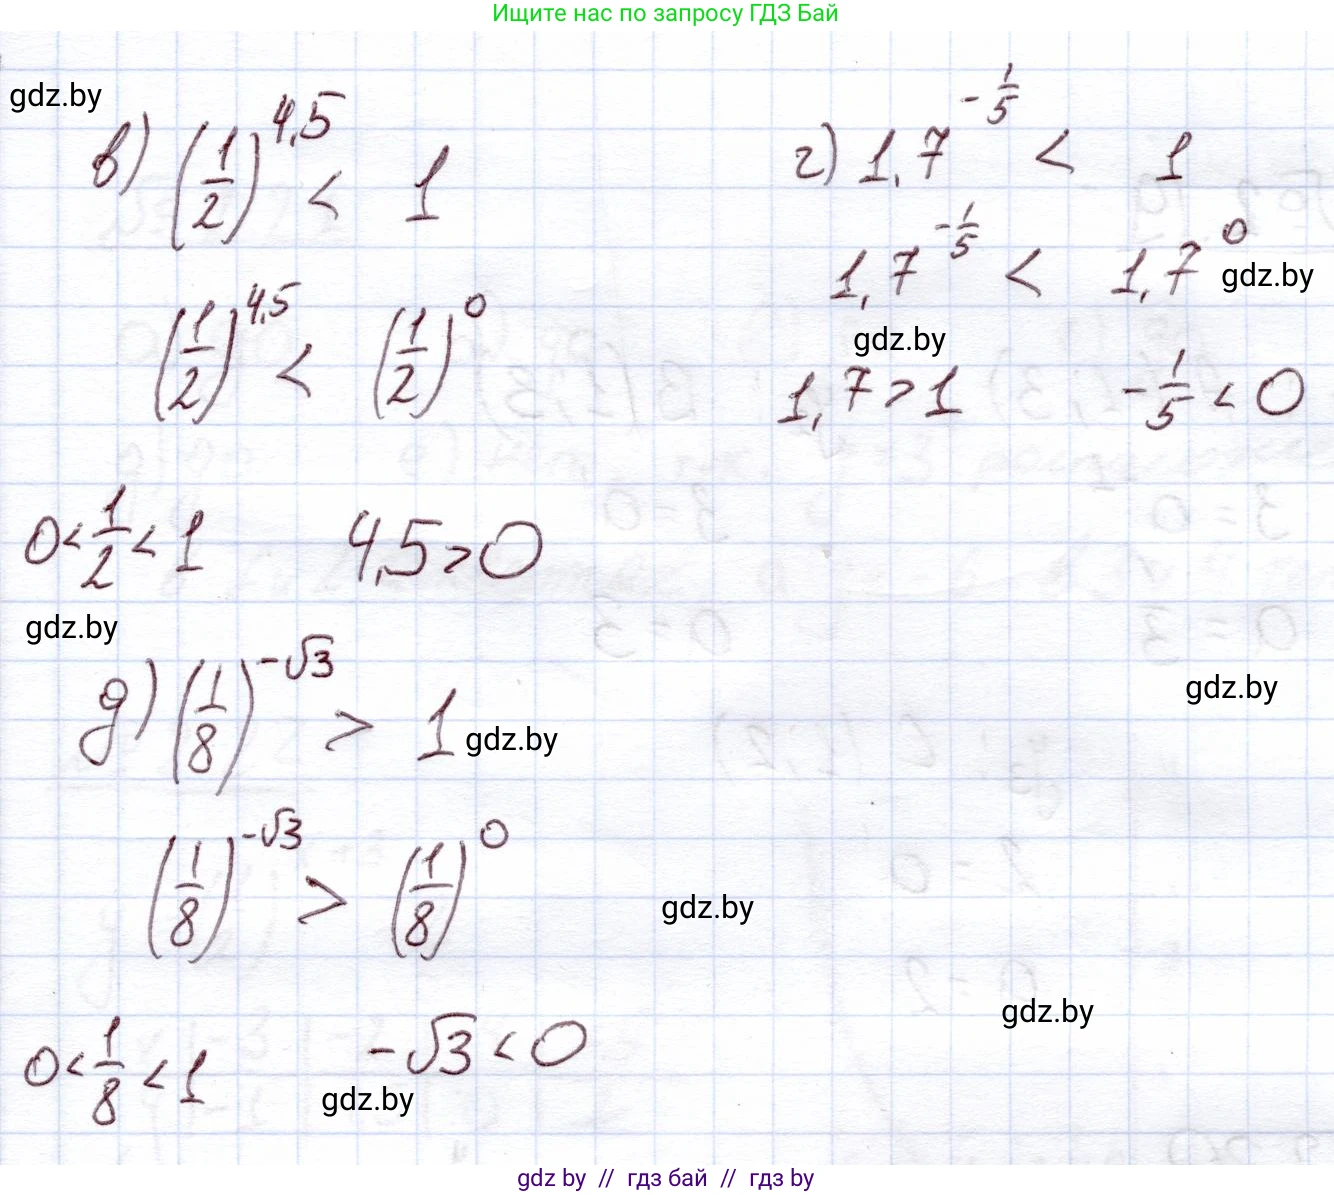 Ищите нас по запросу ГДЗ Бай
gdz.by
в) (1/2)^4,5 < 1
(1/2)^4,5 < (1/2)^0
0 < 1/2 < 1 4,5 > 0
gdz.by
г) 1,7^(-1/5) < 1
1,7^(-1/5) < 1,7^0
gdz.by
gdz.by
1,7 > 1 -1/5 < 0
gdz.by
д) (1/8)^(-√3) > 1
gdz.by
(1/8)^(-√3) > (1/8)^0
gdz.by
gdz.by
0 < 1/8 < 1 -√3 < 0
gdz.by
gdz by // гдз бай // gdz by